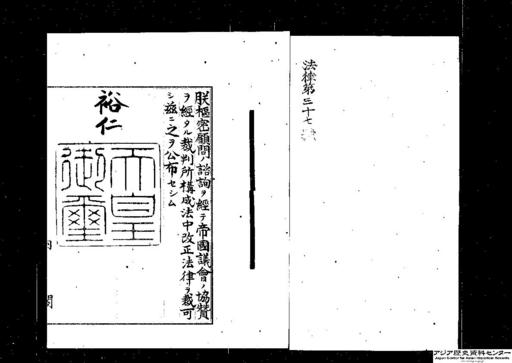 法律第三十七
朕樞密顧問ノ諮詢ヲ經テ帝國議會ノ協贊
ヲ經タル裁判所構成法中改正法律ヲ裁可
シ茲ニ之ヲ公布セシム
裕仁
天皇
御璽
閣
アジア歴史資料センター
Japan Center for Asian Historical Records